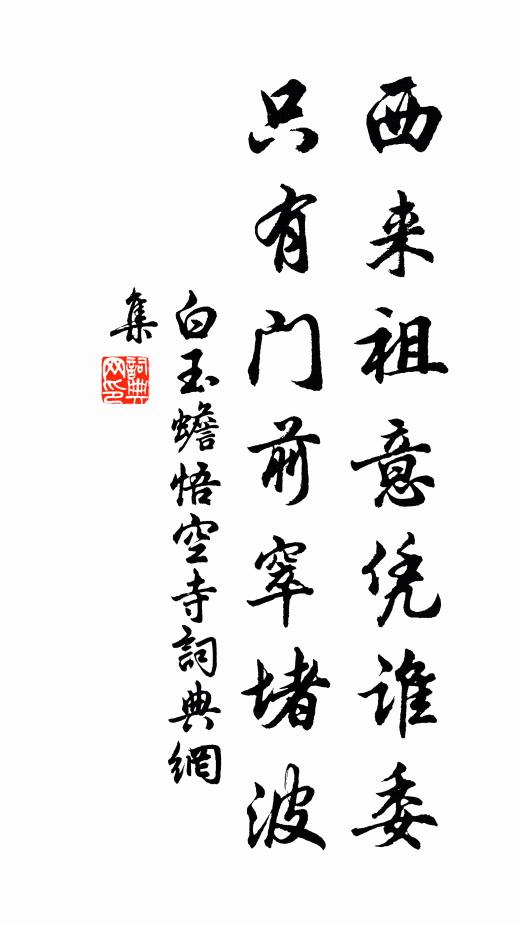 西来祖意凭谁委
只有门前窣堵波
白玉蟾悟空寺詞典網
集
詞典
网印